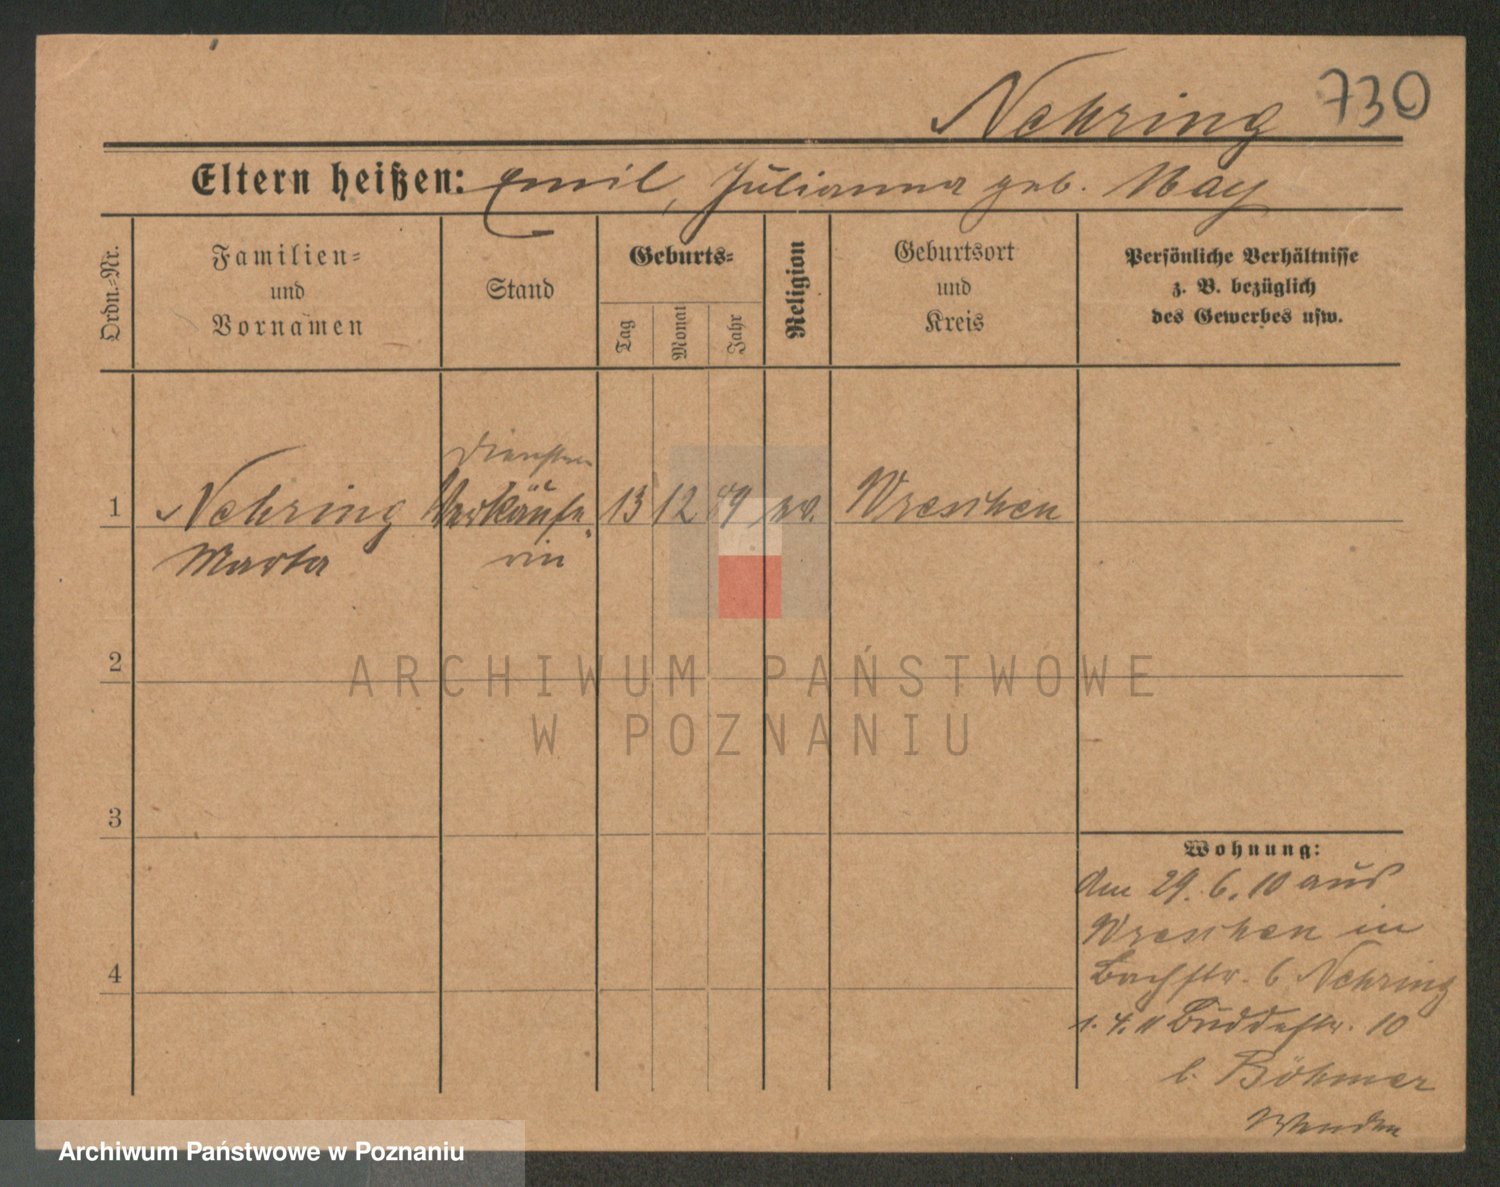 Nehring 730
Eltern heißen: Emil, Julianna geb. May
Ordn.-Nr.
Familien-
und
Vornamen
Stand
Geburts-
Tag
Monat
Jahr
Religion
Geburtsort
und
Kreis
Persönliche Verhältnisse
z. B. bezüglich
des Gewerbes usw.
1 Nehring Verkäufe- 13 12 89 ev. Wreschen
Marta rin
2
ARCHIWUM PAŃSTWOWE
W POZNANIU
3
Wohnung:
den 29. 6. 10 aus
Wreschen in
Bachstr. 6 Nehring
1. 4. 11 Buddestr. 10
b. Böhmer
4
Archiwum Państwowe w Poznaniu